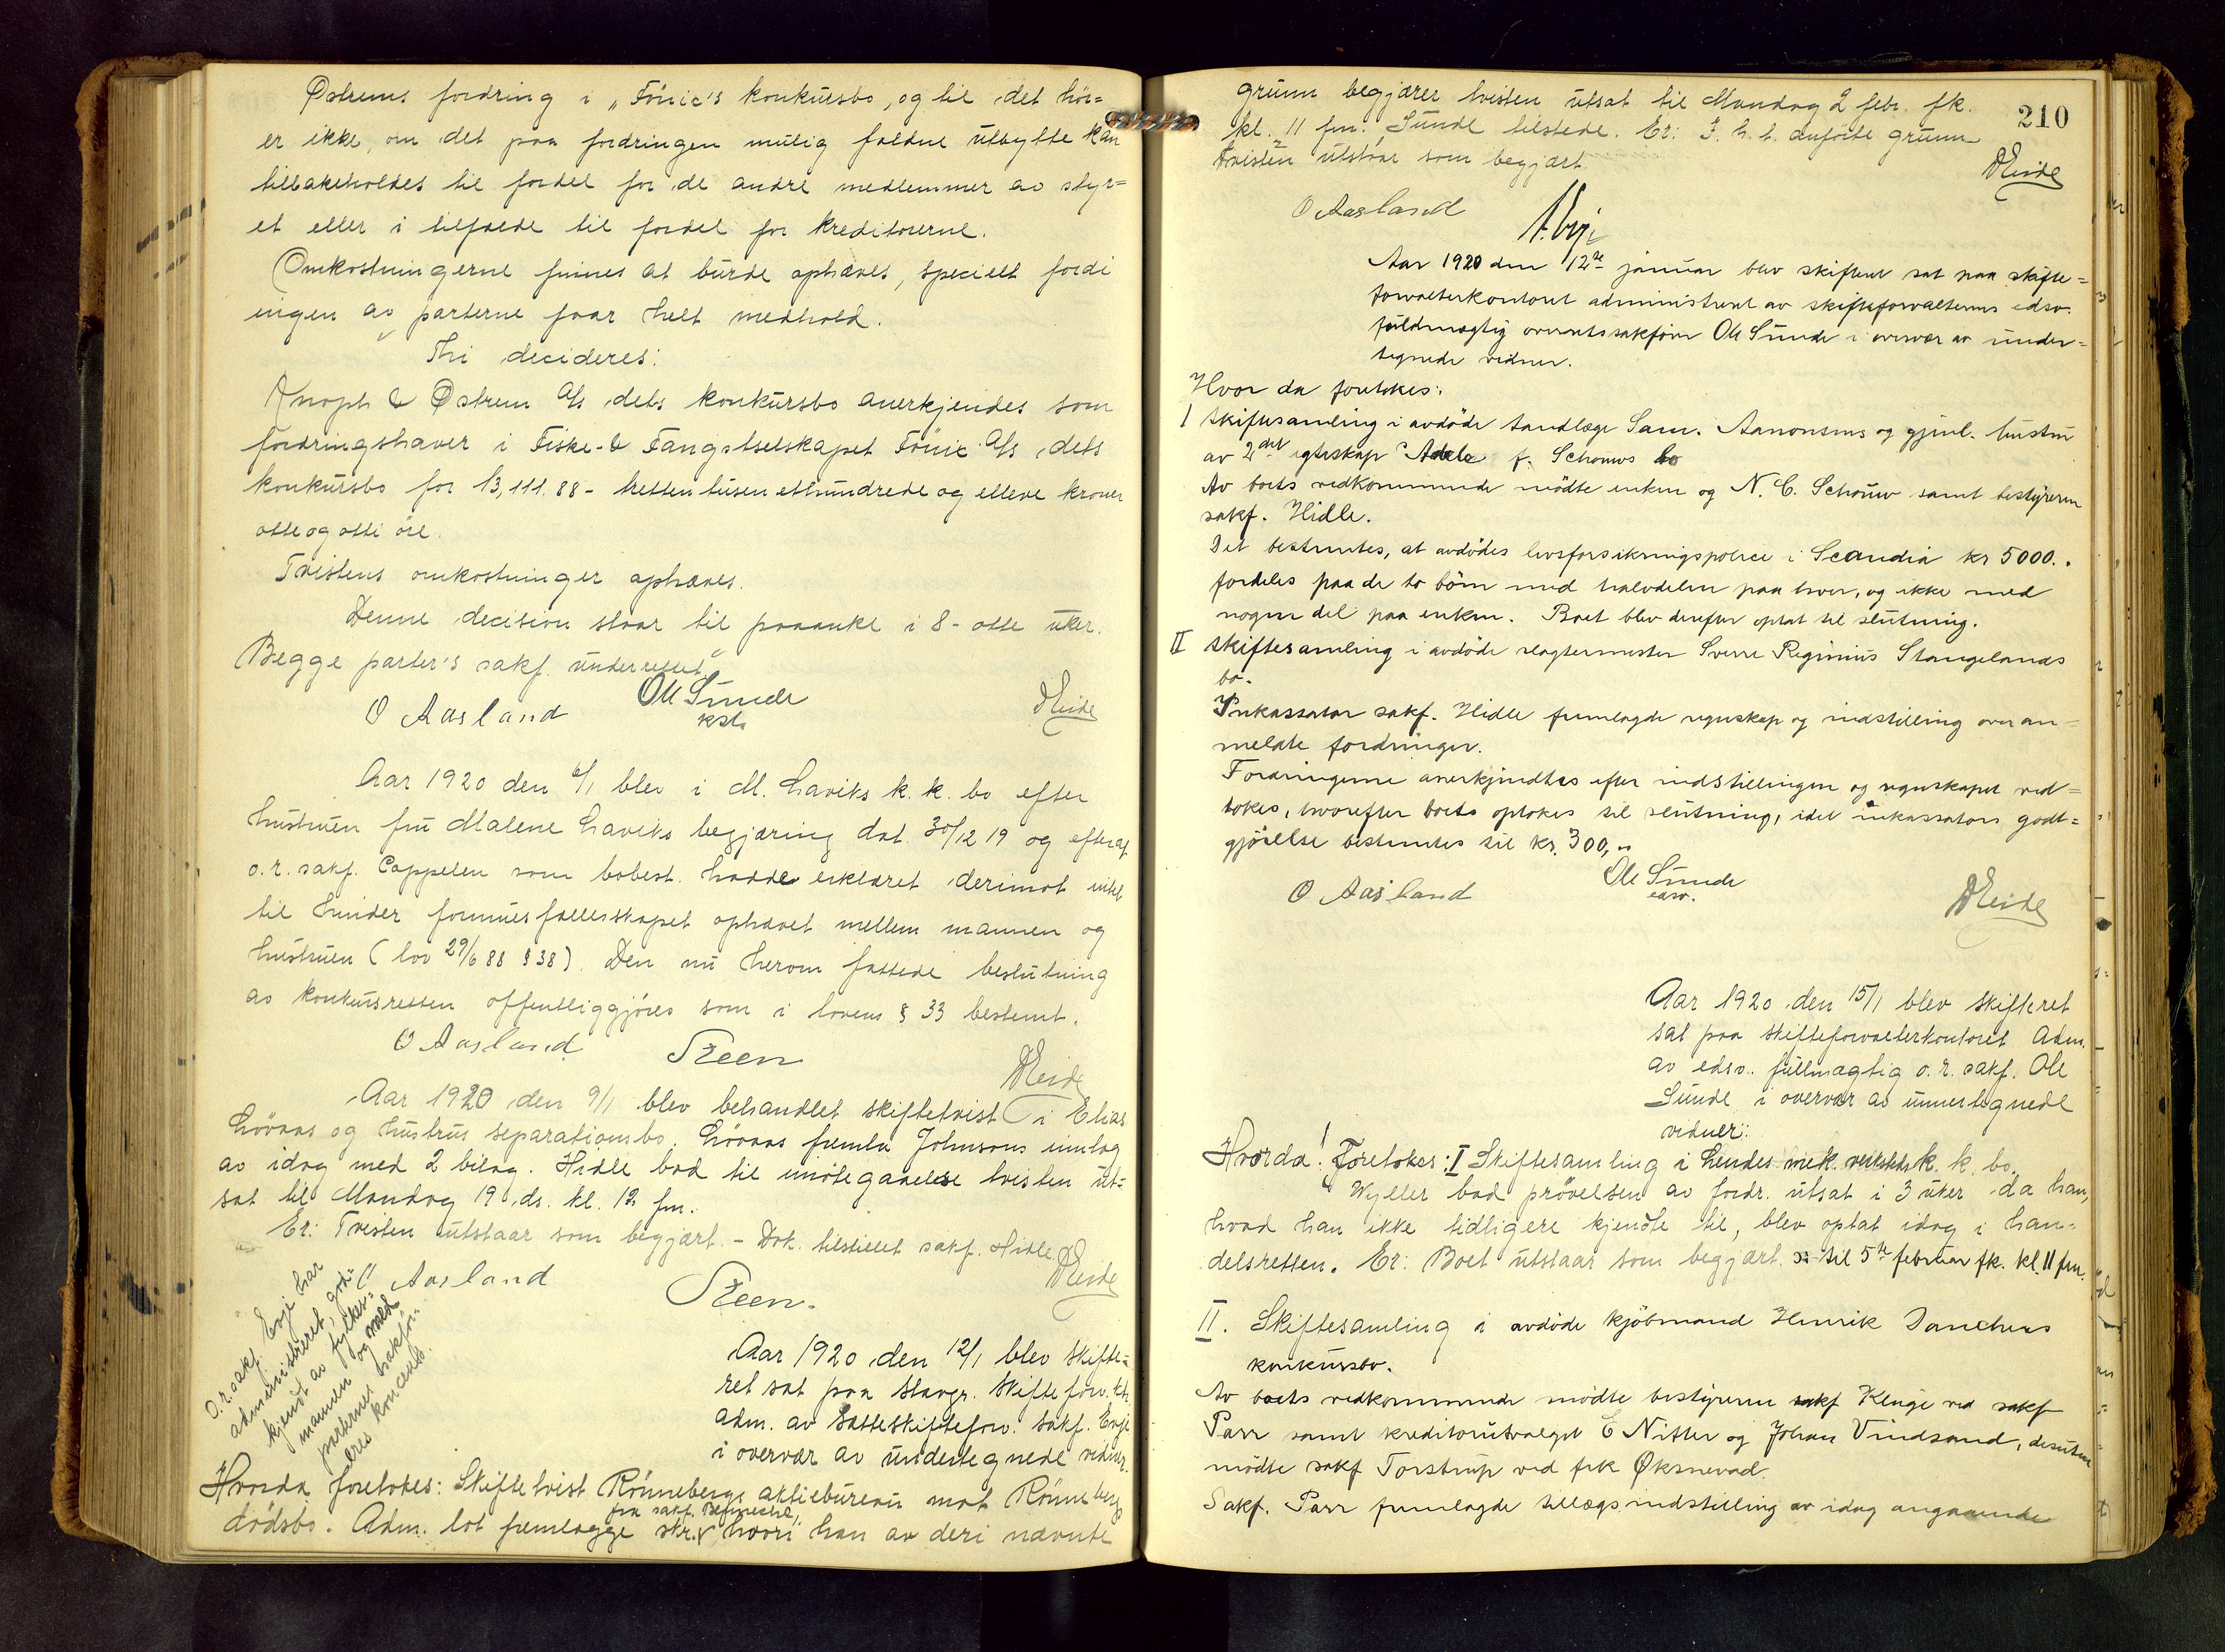 Østrems fordring i „Fönix's konkursbo, og til det hör=
er ikke, om det paa fordringen mulig faldne utbytte kan
tilbakeholdes til fordel for de andre medlemmer av styr=
et eller i tilfælde til fordel for kreditorerne.
Omkostningerne finnes at burde ophæves, specielt fordi
ingen av parterne faar helt medhold.
Thi decideres:
Knoph & Østrem A/s dets konkursbo anerkjendes som
fordringshaver i Fiske- & Fangstselskapet Fönix A/s, dets
konkursbo for 13,111.88 - tretten tusen ethundrede og elleve kroner
otte og otti öre.
Tvistens omkostninger ophæves.
Denne decision staar til paaanke i 8 - otte uker.
Begge parter's sakf. underrettet.
O Aasland
Ole Sunde
kst.
DEide
Aar 1920 den 6/1 blev i M. Haviks k. k. bo efter
hustruen fru Malene Haviks begjæring dat. 30/12 19 og efterat
o.r. sakf. Cappelen som bobest. hadde erklæret derimot intet
til hinder formuesfællesskapet ophævet mellem mannen og
hustruen (lov 29/6 88 § 38). Den nu herom fattede beslutning
av konkursretten offentliggjöres som i lovens § 33 bestemt.
O Aasland
Steen
DEide
Aar 1920 den 9/1 blev behandlet skiftetvist i Elias
Lövaas og hustrus separationsbo. Lövaas fremla Johnsons innlag
av idag med 2 bilag. Hidle bad til imötegaaelse tvisten ut=
sat til Mandag 19 ds. kl. 12 fm.
Er: Tvisten utstaar som begjært. - Dok. tilstillet sakf. Hidle
O Aasland
Steen.
DEide
O.r. sakf. Evje har
administreret, god=
kjendt av fylkes=
mannen og med
parternes sakfö=
reres koncens.
Aar 1920 den 12/1 blev skifte=
ret sat paa Stavgr. skifteforv. kt.
Adm. av Sætteskifteforv. sakf. Evje
i overvær av undertegnede vidner.
Hvorda foretokes: Skiftetvist Rönnebergs aktiebureau mot Rönnebergs
fra sakf. Behrechl,
dödsbo. Adm. lot fremlægge skr. hvori han av deri nævnte
210
grunn begjærer tvisten utsat til Mandag 2 febr. fk.
kl. 11 fm. Sunde tilstede. Er: I. h. t. anförte grunn
tvisten utstaar som begjært.
DEide
O Aasland
A. Evje
Aar 1920 den 12te januar blev skifteret sat paa skifte=
forvalterkontoret administreret av skifteforvalterens edsv.
fuldmægtig overretssakförer Ole Sunde i overvær av under=
tegnede vidner.
Hvor da foretokes:
I Skiftesamling i avdöde tandlæge Sam. Aanonsens og gjenl. hustru
av 2det egteskap Adele f. Schouws bo
Av boets vedkommende mödte enken og N. C. Schouw samt bestyreren
sakf. Hidle.
Det bestemtes, at avdödes livsforsikringspolice i Scandia kr 5000..
fordeles paa de to börn med halvdelen paa hver, og ikke med
nogen del paa enken. Boet blev derefter optat til slutning.
II Skiftesamling i avdöde slagtermester Sverre Reginius Stangelands
bo.
Inkassator sakf. Hidle fremlagde regnskap og indstilling over an=
meldte fordringer.
Fordringerne anerkjendtes efter indstillingen og regnskapet ved=
tokes, hvorefter boets optokes til slutning, idet inkassators godt=
gjörelse bestemtes til kr. 300,-
O Aasland
Ole Sunde
edsv.
DEide
Aar 1920 den 15/1 blev skifteret
sat paa skifteforvalterkontoret Adm.
av edsv. fullmægtig o.r. sakf. Ole
Sunde i overvær av unnertegnede
vidner:
Hvorda! Foretokes: I Skiftesamling i Lendes mek. verksteds k. k. bo.
Wyller bad prövelsen av fordr. utsat i 3 uker da han,
hvad han ikke tidligere kjendte til, blev optat idag i han=
delsretten. Er: Boet utstaar som begjært. til 5te februar fk. kl. 11 fm.
II. Skiftesamling i avdöde kjöbmand Henrik Danchens
konkursbo.
Av boets vedkommende mödte bestyreren sakf Kluge ved sakf
Parr samt kreditorutvalget E Nitter og Johan Vindsand, desuten
mödte sakf Torstrup ved frk Øksnevad.
Sakf. Parr fremlagde tillægsindstilling av idag angaaende